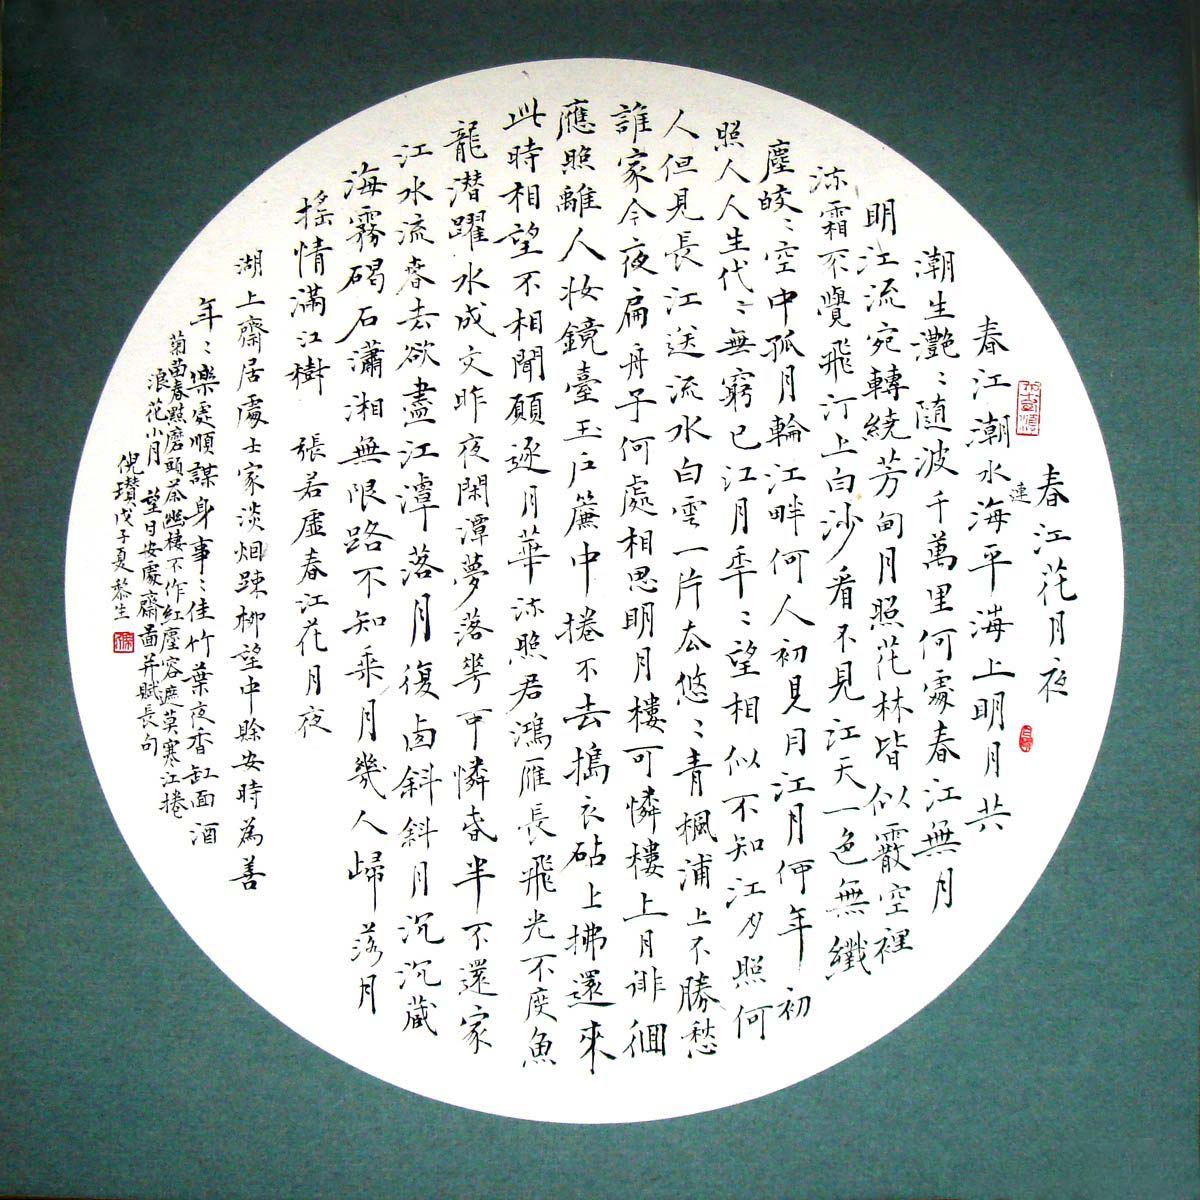 春江花月夜
春江潮水海平海上明月共
連
潮生灔〻隨波千萬里何處春江無月
明江流宛轉繞芳甸月照花林皆似霰空裡
流霜不覺飛汀上白沙看不見江天一色無纖
塵皎〻空中孤月輪江畔何人初見月江月何年初
照人人生代〻無窮已江月年〻望相似不知江月照何
人但見長江送流水白雲一片去悠〻青楓浦上不勝愁
誰家今夜扁舟子何處相思明月樓可憐樓上月徘徊
應照離人妝鏡臺玉戶簾中捲不去搗衣砧上拂還來
此時相望不相聞願逐月華流照君鴻雁長飛光不度魚
龍潛躍水成文昨夜閑潭夢落花可憐春半不還家
江水流春去欲盡江潭落月復西斜斜月沉沉藏
海霧碣石瀟湘無限路不知乘月幾人歸落月
搖情滿江樹 張若虛春江花月夜
湖上齋居處士家淡烟踈柳望中賒安時為善
年〻樂處順謀身事〻佳竹葉夜香缸面酒
菊苗春點磨頭茶幽棲不作紅塵客遮莫寒江捲
浪花小月 望日安處齋啚并賦長句
倪瓚戊子夏黎生